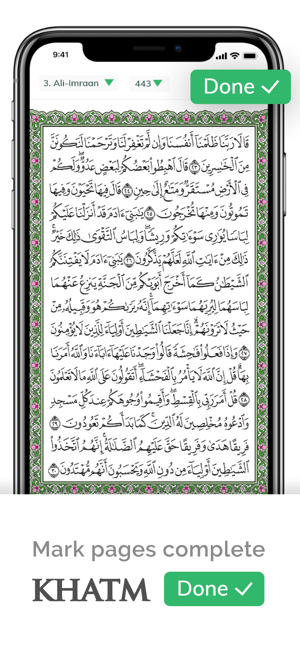 9:41
3. Ali-Imraan
443
Done
قَالَا رَبَّنَا ظَلَمْنَا أَنفُسَنَا وَإِن لَّمْ تَغْفِرْ لَنَا وَتَرْحَمْنَا لَنَكُونَنَّ
مِنَ ٱلْخَٰسِرِينَ ٢٣ قَالَ ٱهْبِطُوا۟ بَعْضُكُمْ لِبَعْضٍ عَدُوٌّ ۖ وَلَكُمْ
فِى ٱلْأَرْضِ مُسْتَقَرٌّ وَمَتَٰعٌ إِلَىٰ حِينٍ ٢٤ قَالَ فِيهَا تَحْيَوْنَ وَفِيهَا
تَمُوتُونَ وَمِنْهَا تُخْرَجُونَ ٢٥ يَٰبَنِىٓ ءَادَمَ قَدْ أَنزَلْنَا عَلَيْكُمْ
لِبَاسًا يُوَٰرِى سَوْءَٰتِكُمْ وَرِيشًا ۖ وَلِبَاسُ ٱلتَّقْوَىٰ ذَٰلِكَ خَيْرٌ ۚ
ذَٰلِكَ مِنْ ءَايَٰتِ ٱللَّهِ لَعَلَّهُمْ يَذَّكَّرُونَ ٢٦ يَٰبَنِىٓ ءَادَمَ لَا يَفْتِنَنَّكُمُ
ٱلشَّيْطَٰنُ كَمَآ أَخْرَجَ أَبَوَيْكُم مِّنَ ٱلْجَنَّةِ يَنزِعُ عَنْهُمَا
لِبَاسَهُمَا لِيُرِيَهُمَا سَوْءَٰتِهِمَآ ۗ إِنَّهُۥ يَرَىٰكُمْ هُوَ وَقَبِيلُهُۥ مِنْ
حَيْثُ لَا تَرَوْنَهُمْ ۗ إِنَّا جَعَلْنَا ٱلشَّيَٰطِينَ أَوْلِيَآءَ لِلَّذِينَ لَا يُؤْمِنُونَ
٢٧ وَإِذَا فَعَلُوا۟ فَٰحِشَةً قَالُوا۟ وَجَدْنَا عَلَيْهَآ ءَابَآءَنَا وَٱللَّهُ أَمَرَنَا
بِهَا ۗ قُلْ إِنَّ ٱللَّهَ لَا يَأْمُرُ بِٱلْفَحْشَآءِ ۖ أَتَقُولُونَ عَلَى ٱللَّهِ مَا لَا تَعْلَمُونَ
٢٨ قُلْ أَمَرَ رَبِّى بِٱلْقِسْطِ ۖ وَأَقِيمُوا۟ وُجُوهَكُمْ عِندَ كُلِّ مَسْجِدٍ
وَٱدْعُوهُ مُخْلِصِينَ لَهُ ٱلدِّينَ ۚ كَمَا بَدَأَكُمْ تَعُودُونَ ٢٩
فَرِيقًا هَدَىٰ وَفَرِيقًا حَقَّ عَلَيْهِمُ ٱلضَّلَٰلَةُ ۗ إِنَّهُمُ ٱتَّخَذُوا۟
ٱلشَّيَٰطِينَ أَوْلِيَآءَ مِن دُونِ ٱللَّهِ وَيَحْسَبُونَ أَنَّهُم مُّهْتَدُونَ ٣٠
Mark pages complete
KHATM Done